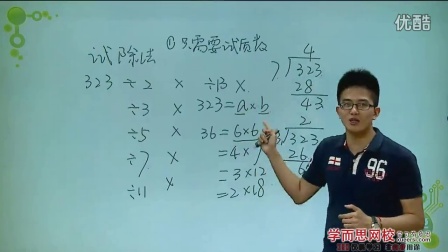 YOUKU
试除法
①只需要试质数
323 ÷2 ×
÷3 ×
÷5 ×
÷7 ×
÷11 ×
÷13 ×
323 = a × b
36 = 6×6
= 4 ×
= 3 × 12
= 2 × 18
4
7 323
28
43
2
3 323
26
6
96
学而思网校